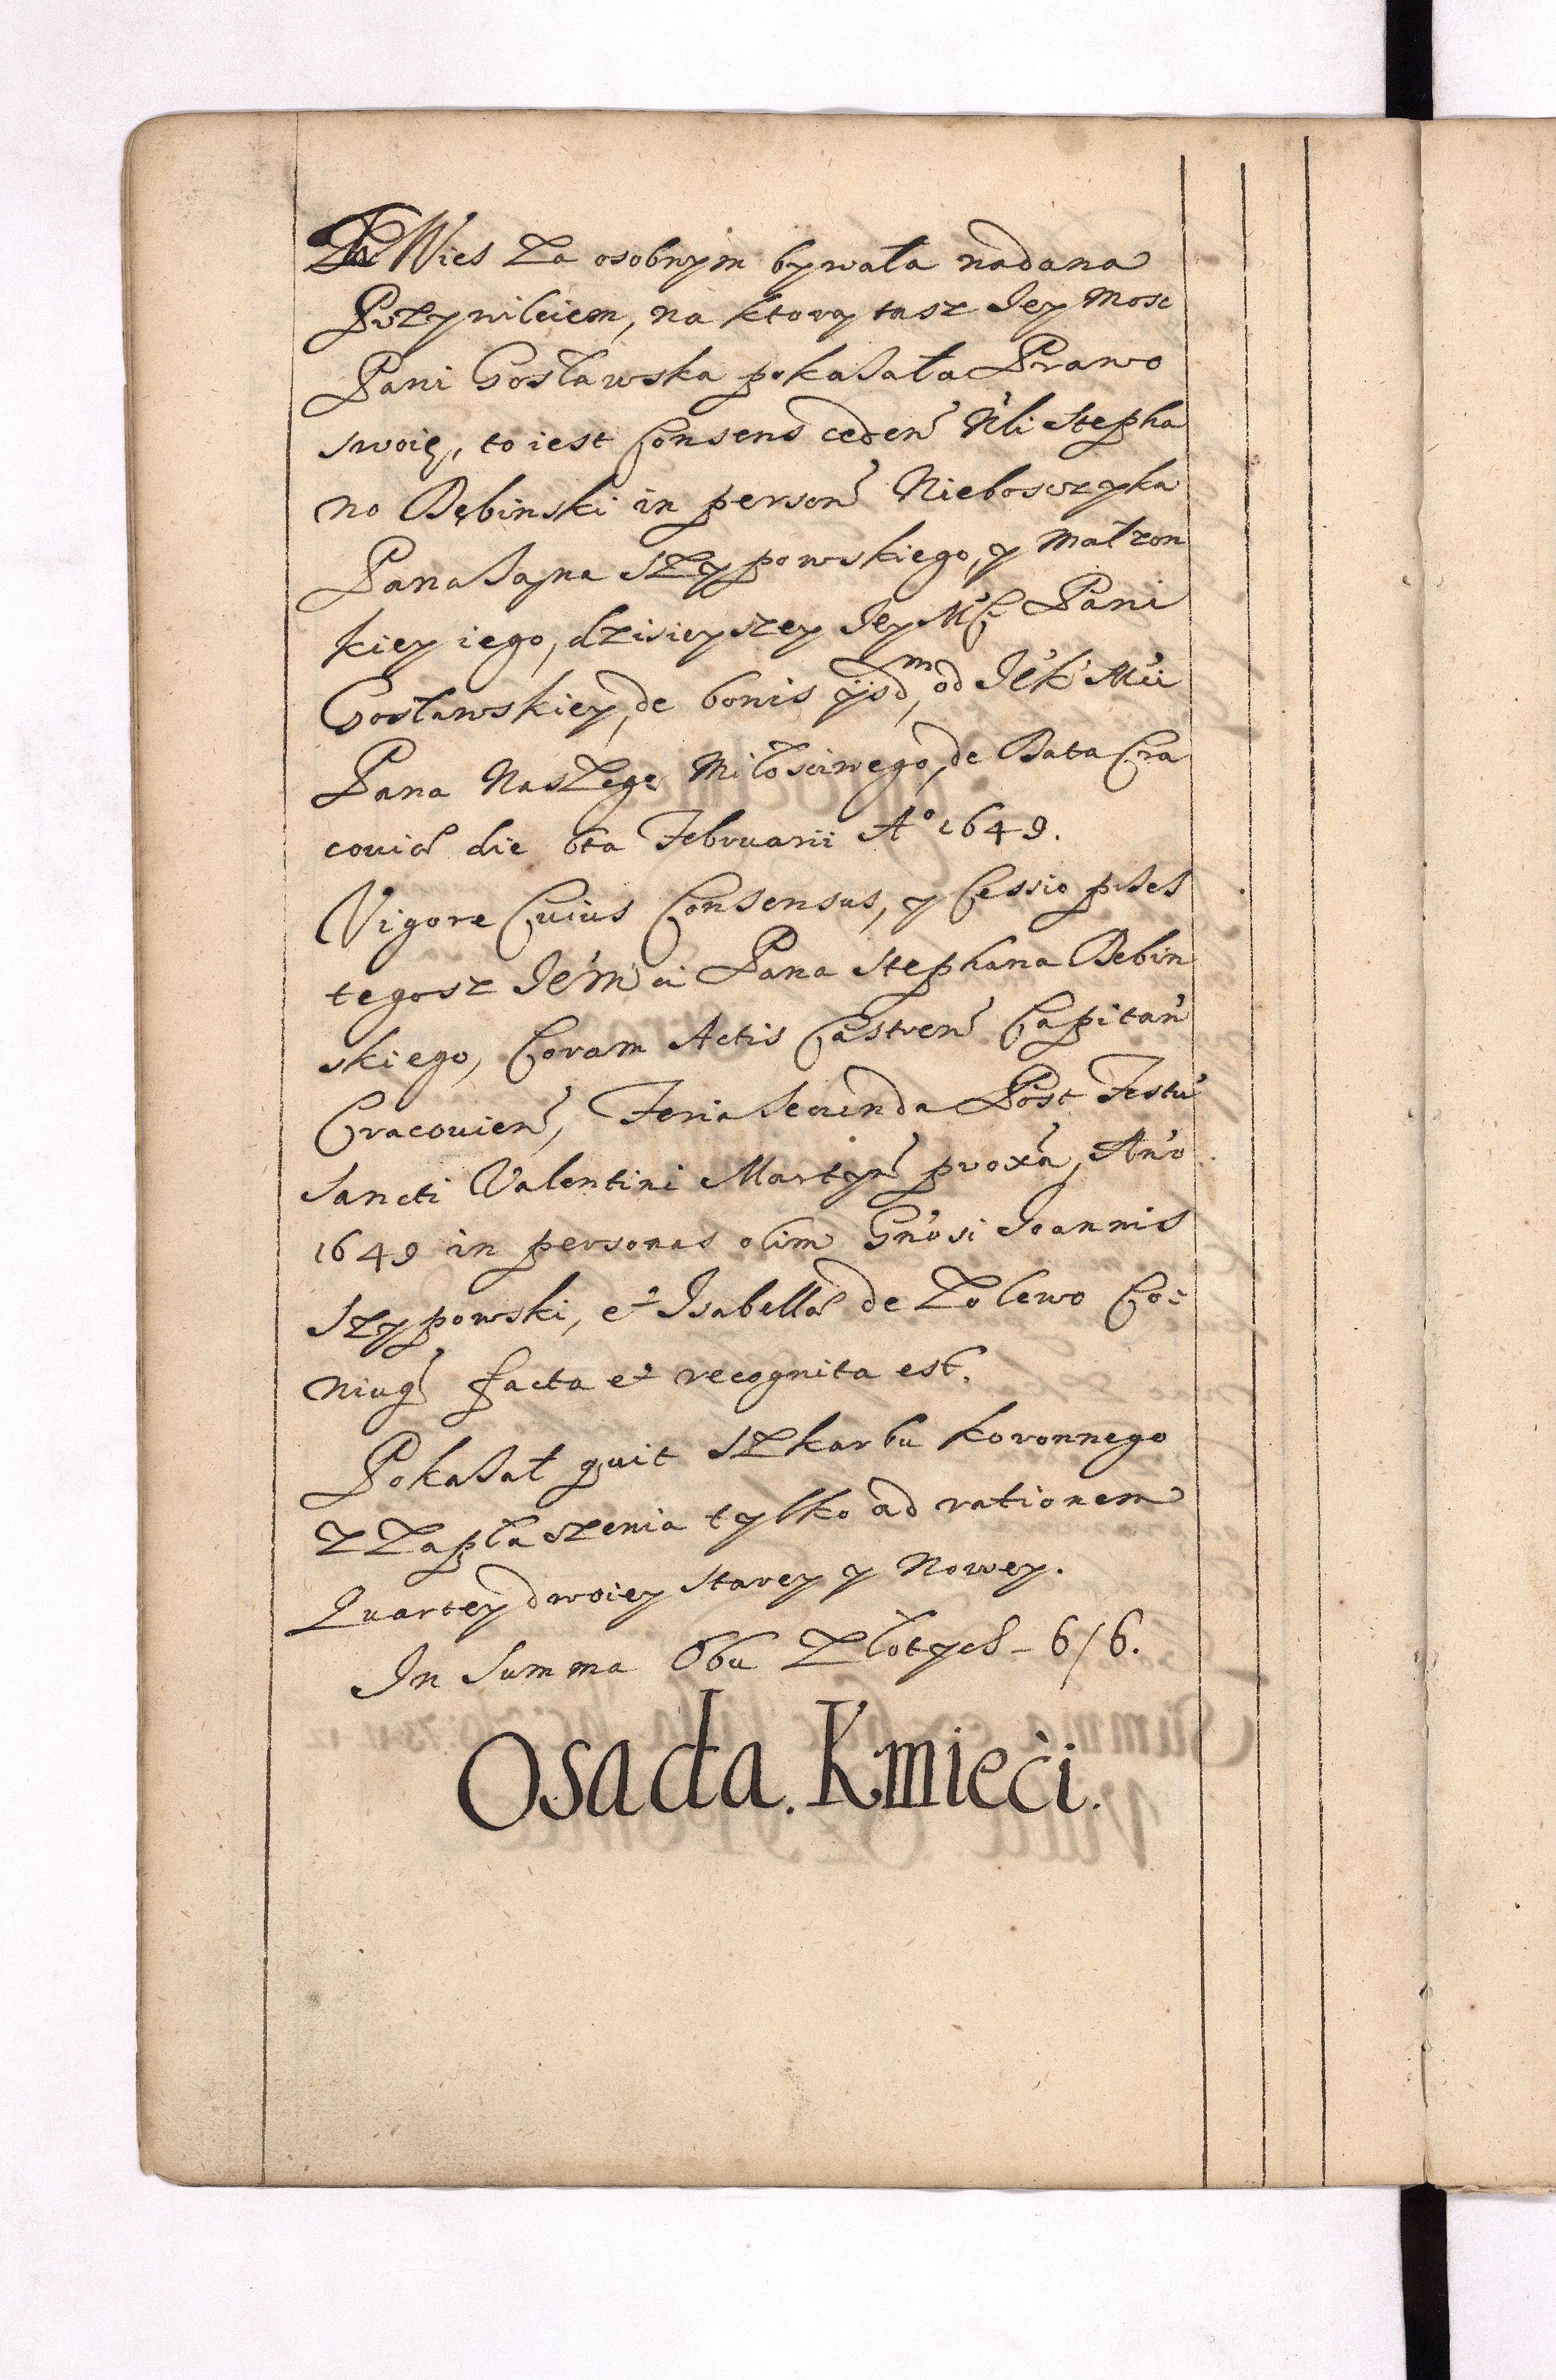 Ta Wies za osobnym bywała nadana
Przywileiem, na ktorą tasz Jey Mosc
Pani Gosławska pokasała Prawo
swoię, to iest Consens ceden Nli Stepha
no Dębinski in person Nieboszczyka
Pana Jana Szypowskiego, y małzon
kiey iego, dzisieyszey Jey Mci Pani
Gosławskiey, de bonis ijsdm, od JeK Mci
Pana Naszego Miłosciwego, de Data Cra
couiæ die 6ta Februarii A° 1649.
Vigore Cuius Consensus, y Cessio przes
tegosz Jemci Pana Stephana Debin
skiego, Coram Actis Castren Capitan
Cracouien, Feria Secunda Post Festu
Sancti Valentini Martyr proxa, Ano
1649 in personas olim Gnosi Joannis
Szypowski, et Isabellæ de Zolewo Co-
niug facta et recognita est.
Pokasał quit Szkarbu Koronnego
z Zapłaszenia tylko ad rationem
Quartey dwoiey starey y Nowey.
In Summa Obu Złotych - 616.
Osada. Kmieci.